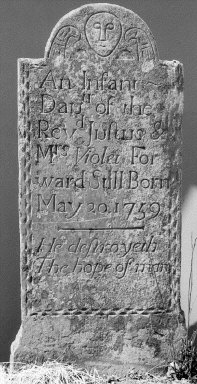 An Infant
Daur of the
Revd Justus &
Mrs Violet For
ward Still Born
May 20, 1759
He destroyeth
The hope of man